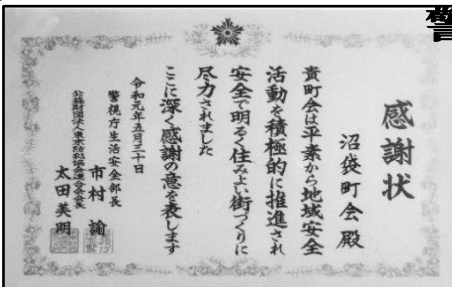 警
感謝状
沼袋町会殿
貴町会は平素から地域安全
活動を積極的に推進され
安全で明るく住みよい街づくりに
尽力されました
ここに深く感謝の意を表します
令和元年五月三十日
警視庁生活安全部長
市村諭
公益財団法人東京防犯協会連合会会長
太田美明